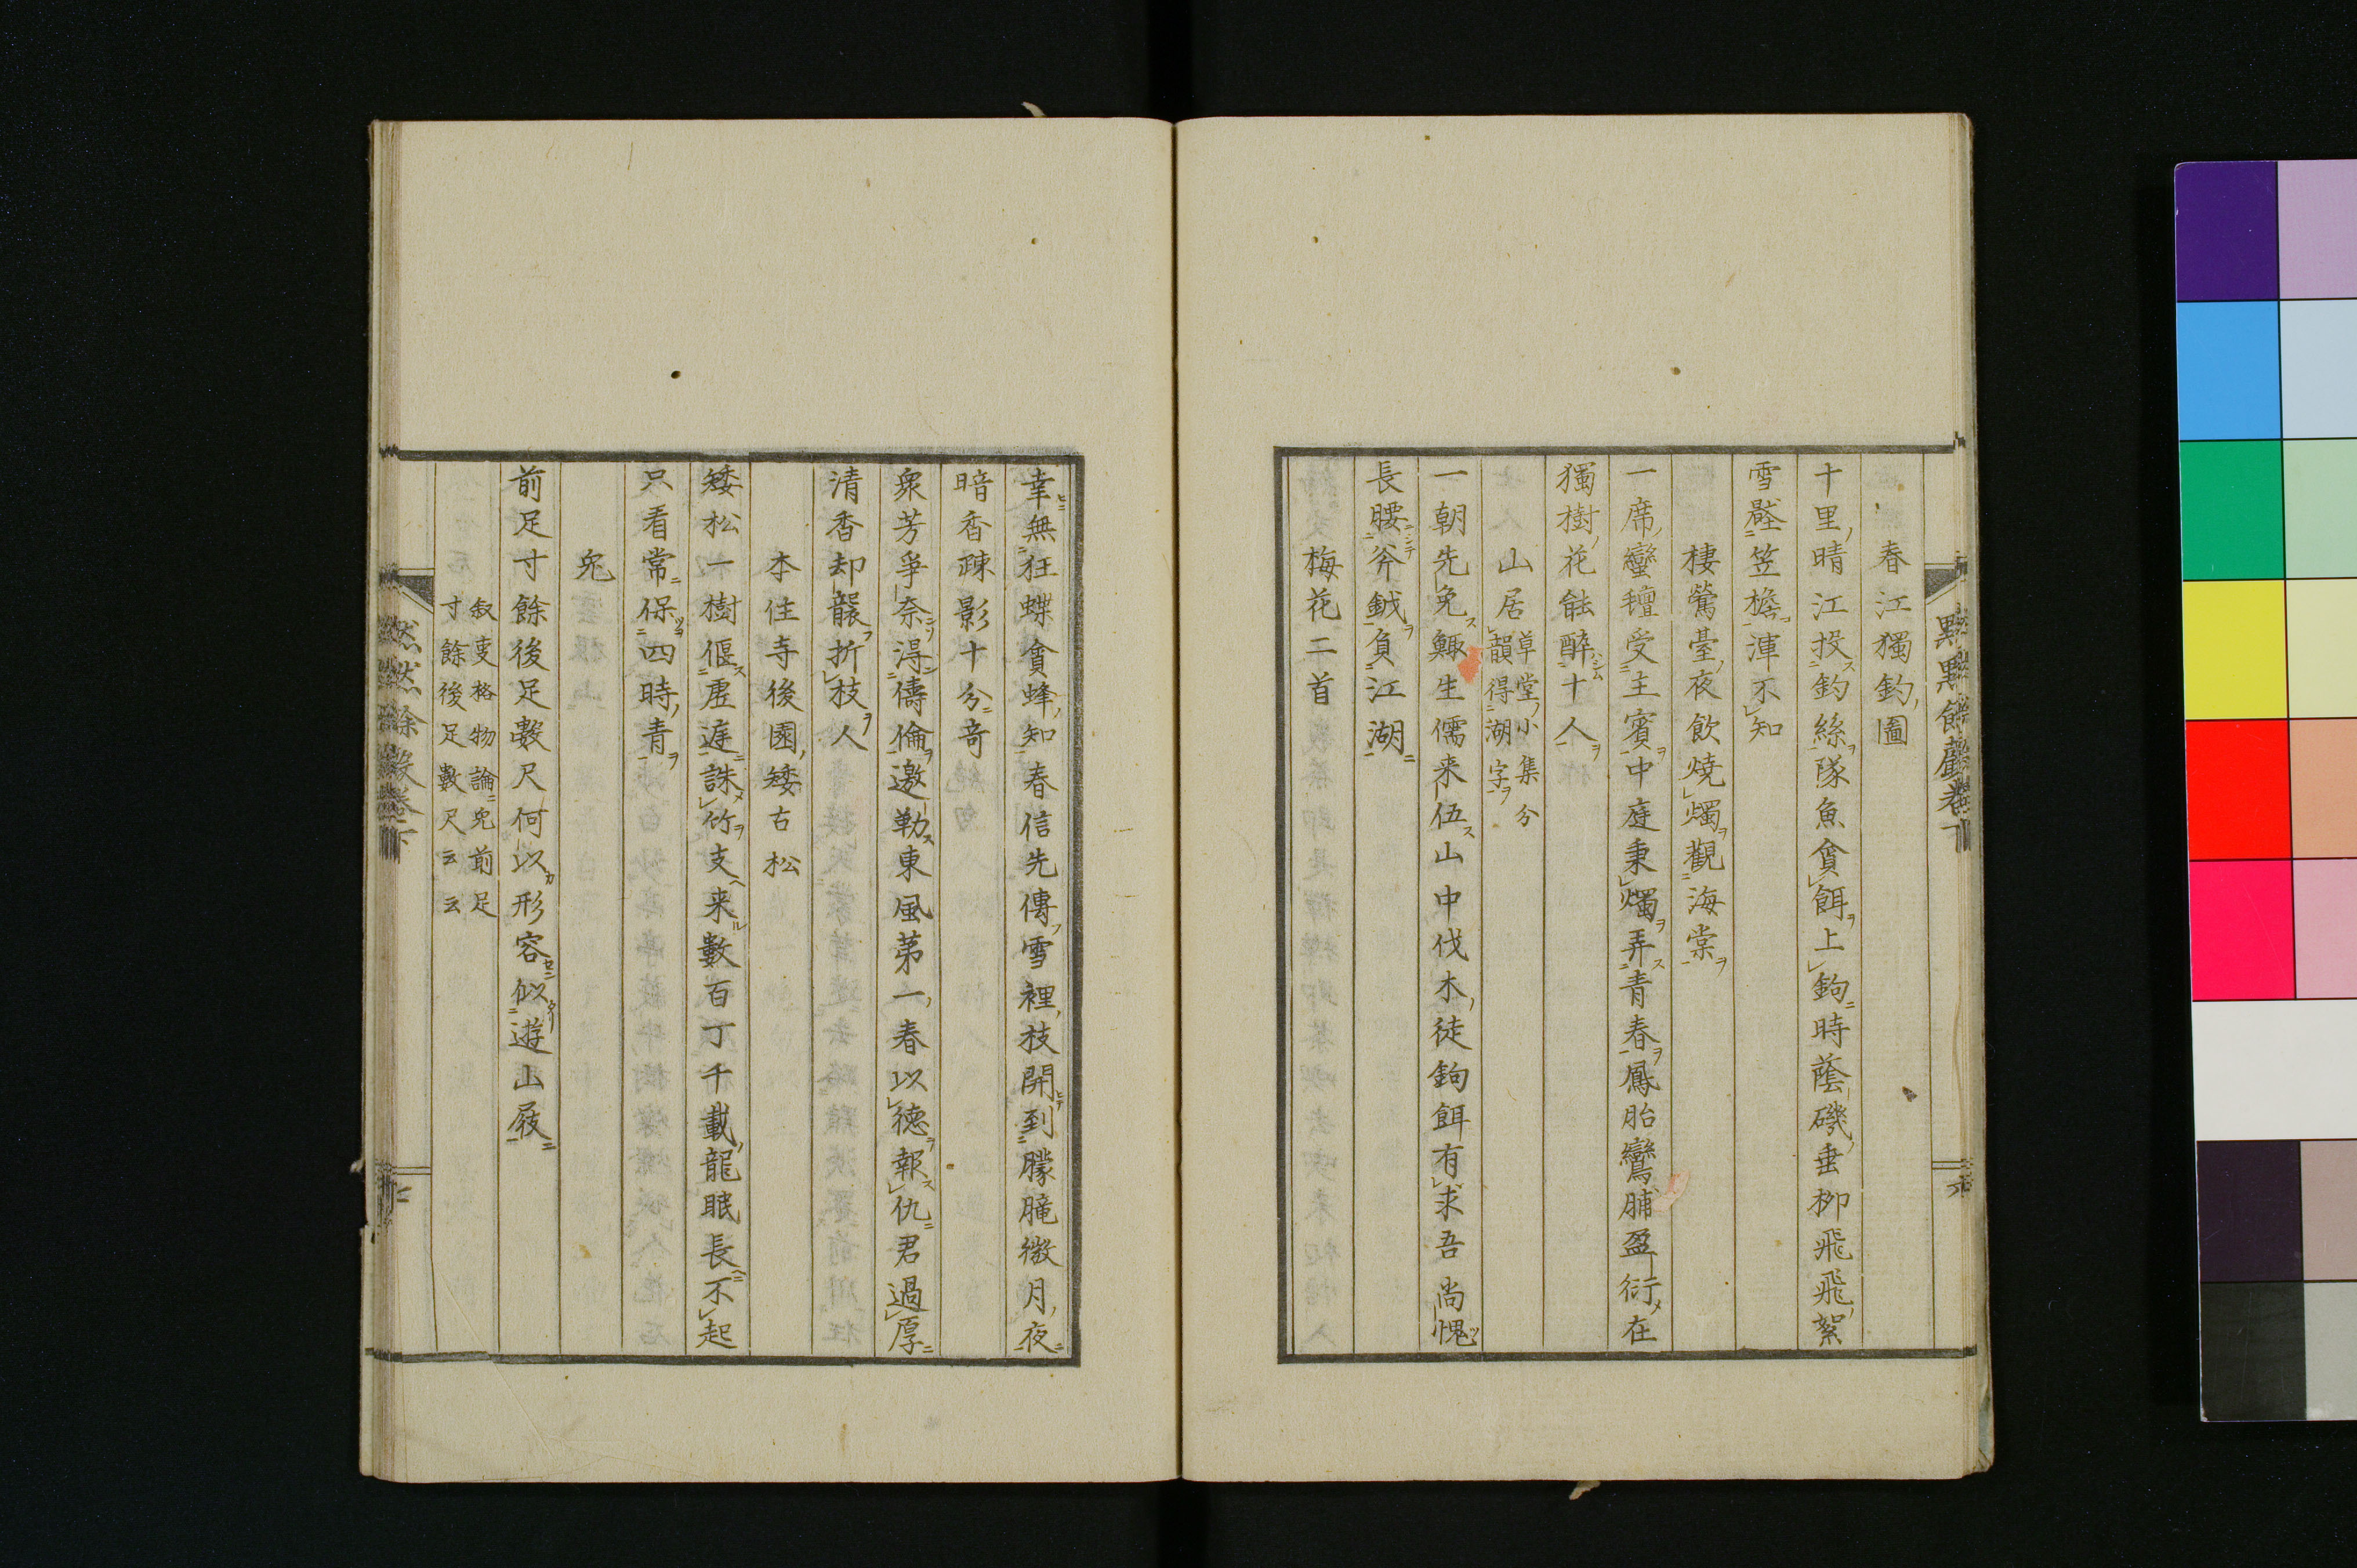 春江獨釣圖
十里晴江投釣絲隊魚貪餌上鉤時蔭磯垂柳飛飛絮
雪壓笠檐渾不知
棲鶯臺夜飲燒燭觀海棠
一席蠻氈受主賓中庭秉燭弄青春鳳胎鸞脯盈衍在
獨樹花能醉十人
山居草堂小集分韻得湖字
一朝先免鯫生儒来伍山中伐木徒鉤餌有求吾尚愧
長腰斧鉞負江湖
梅花二首
幸無狂蝶貪蜂知春信先傳雪裡枝開到朦朧微月夜
暗香疎影十分竒
衆芳爭奈得儔倫邀勒東風第一春以德報仇君過厚
清香却襲折枝人
本住寺後園矮古松
矮松一樹偃虛庭誅竹支来數百丁千載龍眠長不起
只看常保四時青
兎
前足寸餘後足數尺何以形容似遊山屐
叙叟格物論兎前足
寸餘後足數尺云云